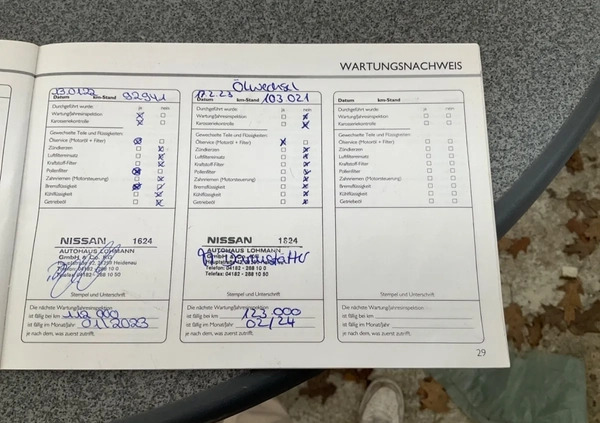 WARTUNGSNACHWEIS
23.01.22 92941
Datum km-Stand
Durchgeführt wurde: ja nein
Wartung/Jahresinspektion
Karosseriekontrolle
Gewechselte Teile und Flüssigkeiten:
Ölservice (Motoröl + Filter)
Zündkerzen
Luftfiltereinsatz
Kraftstoff-Filter
Pollenfilter
Zahnriemen (Motorsteuerung)
Bremsflüssigkeit
Kühlflüssigkeit
Getriebeöl
NISSAN 1624
AUTOHAUS LOHMANN
GmbH & Co. KG
Hauptstraße 42, 21259 Heidenau
Telefon: 04182 - 288 10 0
Telefax: 04182 - 288 10 50
Stempel und Unterschrift
Die nächste Wartung/Jahresinspektion
ist fällig bei km 112 000
ist fällig im Monat/Jahr 01/2023
je nach dem, was zuerst zutrifft.
Ölwechsel
17.2.23 103 021
Datum km-Stand
Durchgeführt wurde: ja nein
Wartung/Jahresinspektion
Karosseriekontrolle
Gewechselte Teile und Flüssigkeiten:
Ölservice (Motoröl + Filter)
Zündkerzen
Luftfiltereinsatz
Kraftstoff-Filter
Pollenfilter
Zahnriemen (Motorsteuerung)
Bremsflüssigkeit
Kühlflüssigkeit
Getriebeöl
NISSAN 1624
AUTOHAUS LOHMANN
GmbH & Co. KG
Telefon: 04182 - 288 10 0
Telefax: 04182 - 288 10 50
Stempel und Unterschrift
Die nächste Wartung/Jahresinspektion
ist fällig bei km 123 000
ist fällig im Monat/Jahr 02/24
je nach dem, was zuerst zutrifft.
Datum km-Stand
Durchgeführt wurde: ja nein
Wartung/Jahresinspektion
Karosseriekontrolle
Gewechselte Teile und Flüssigkeiten:
Ölservice (Motoröl + Filter)
Zündkerzen
Luftfiltereinsatz
Kraftstoff-Filter
Pollenfilter
Zahnriemen (Motorsteuerung)
Bremsflüssigkeit
Kühlflüssigkeit
Getriebeöl
Stempel und Unterschrift
Die nächste Wartung/Jahresinspektion
ist fällig bei km
ist fällig im Monat/Jahr
je nach dem, was zuerst zutrifft.
29